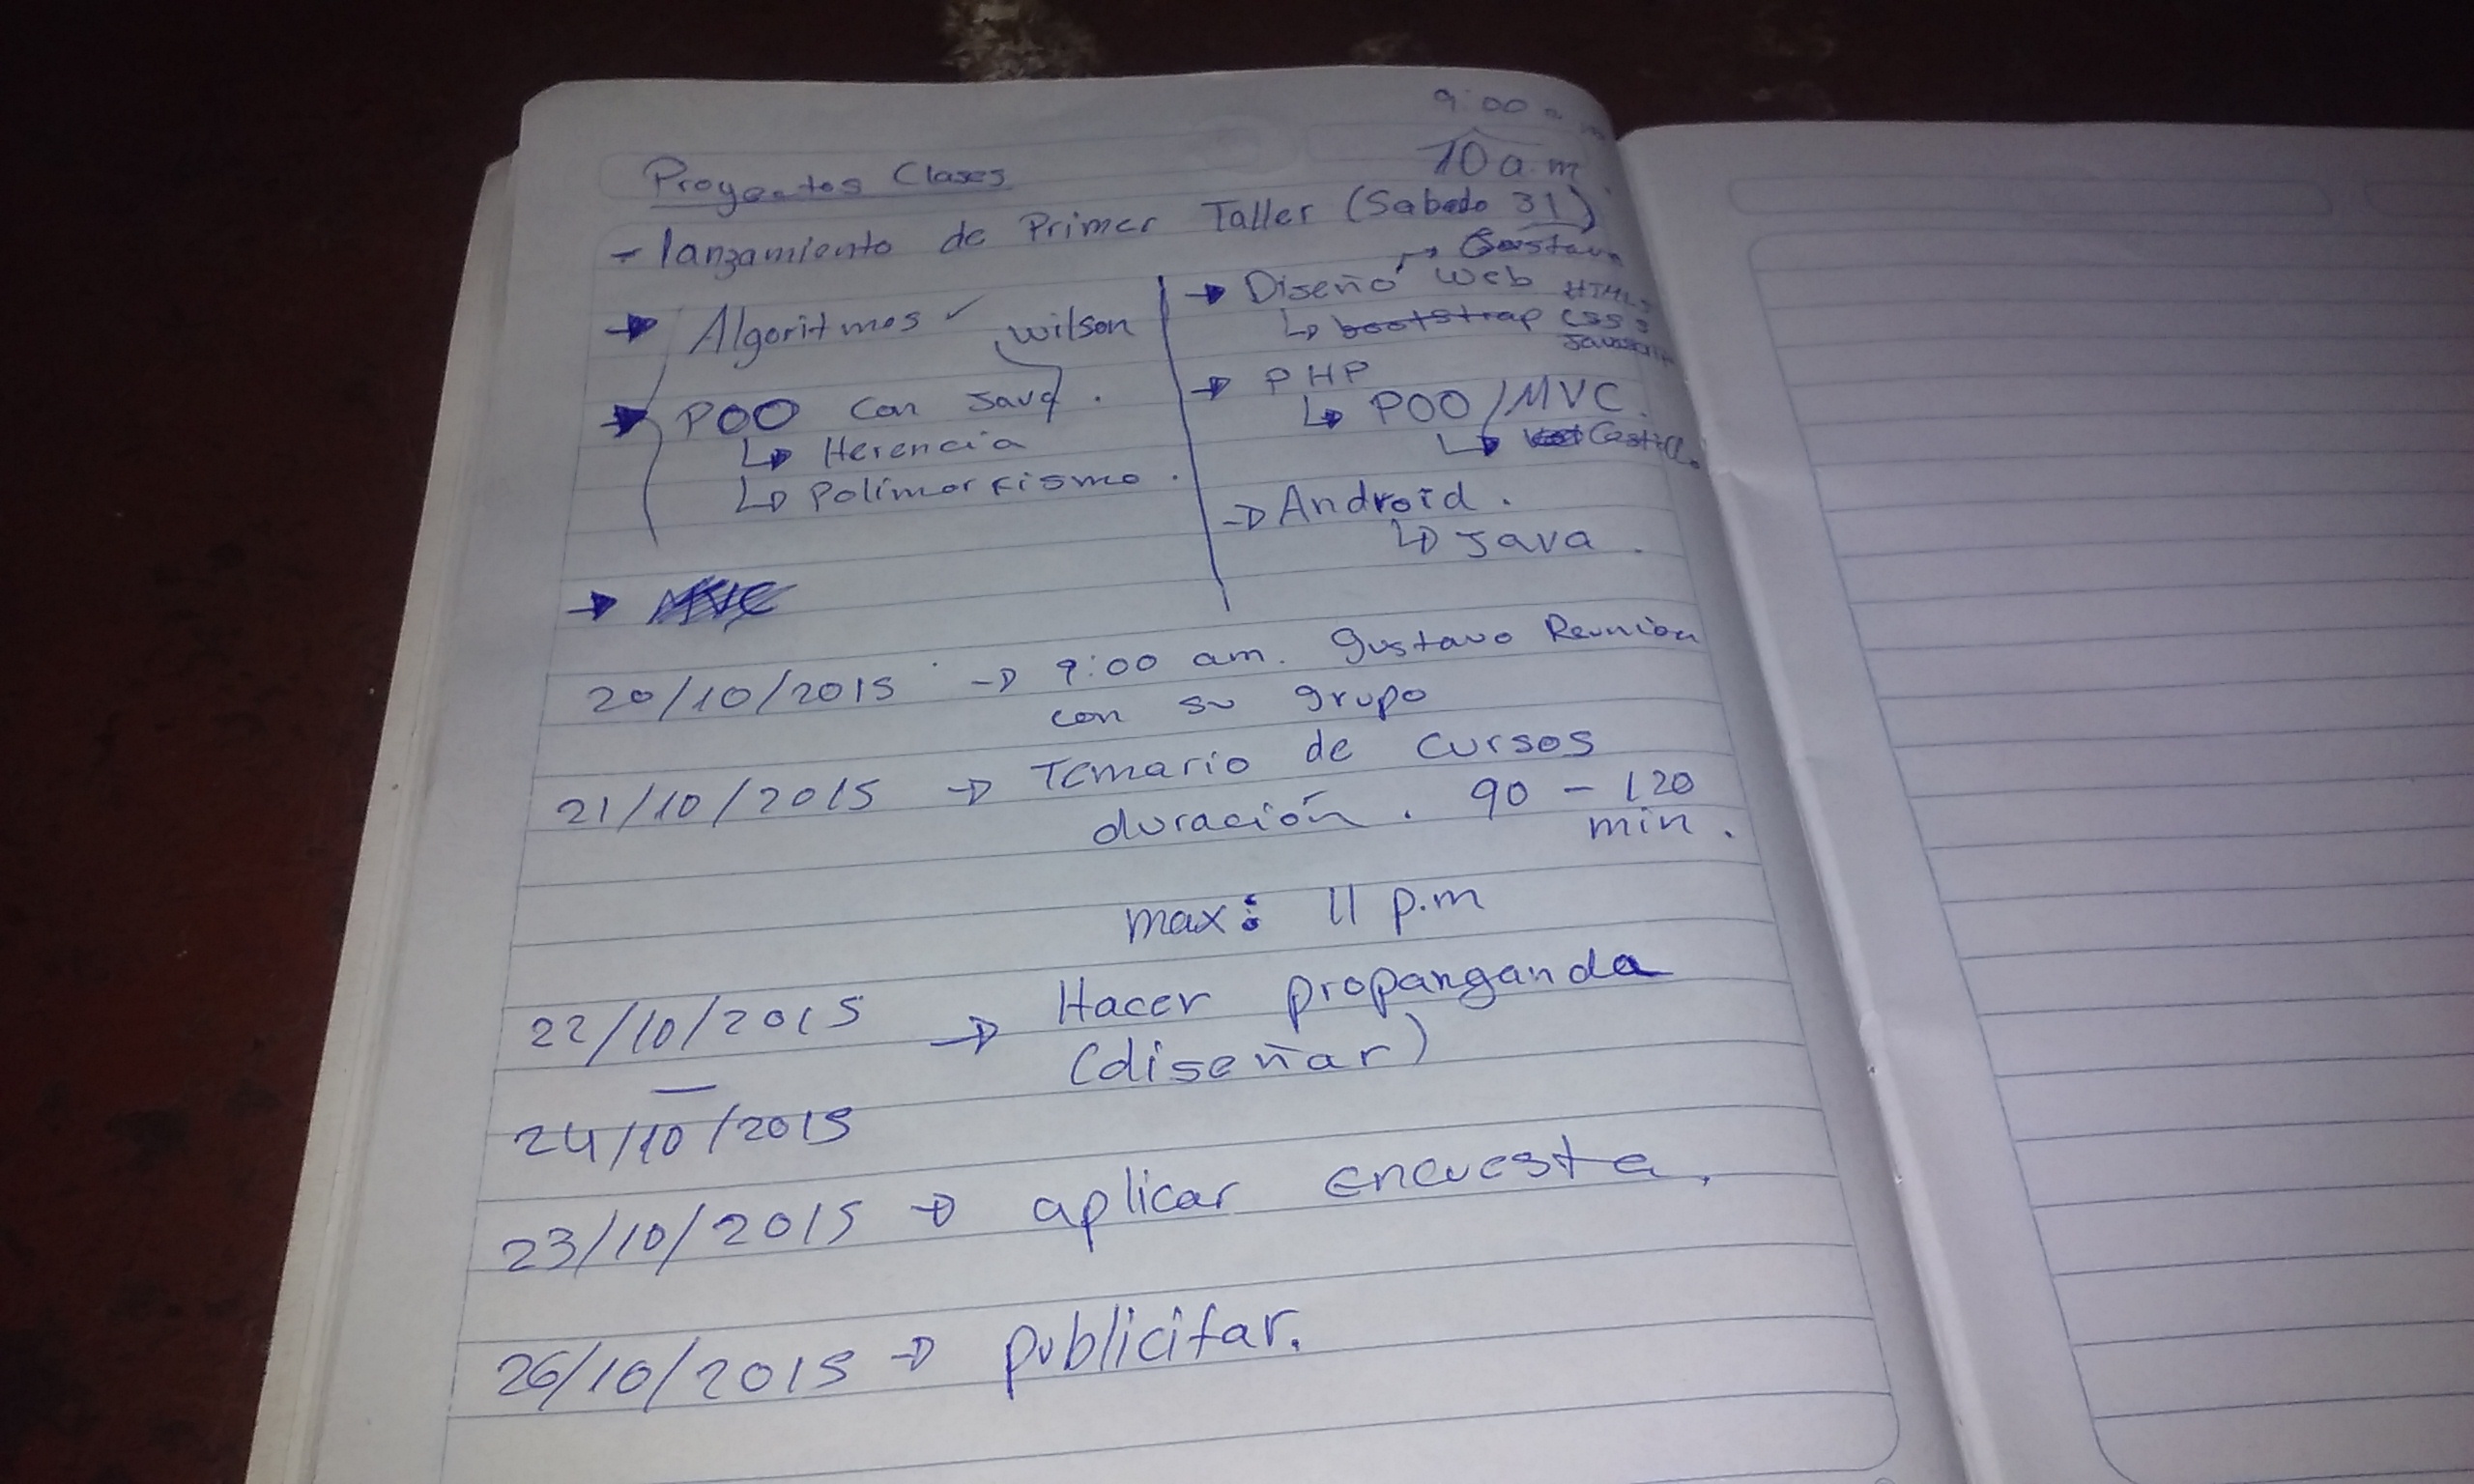 9:00 a m
10 a.m
Proyectos Clases
- lanzamiento de Primer Taller (Sabado 31)
→ Algoritmos ✓ wilson
→ POO con Java.
↳ Herencia
↳ Polimorfismo.
→ MVC
→ Gustavo
→ Diseño Web HTML5
↳ bootstrap CSS3
Javascript
→ PHP
↳ POO / MVC.
↳ Castillo
→ Android.
↳ Java.
20/10/2015 → 9:00 am. Gustavo Reunion
con su grupo
21/10/2015 → Temario de cursos
duración. 90 - 120
min.
max: 11 p.m
22/10/2015 → Hacer propanganda
(diseñar)
—
24/10/2015
23/10/2015 → aplicar encuesta.
26/10/2015 → publicitar.